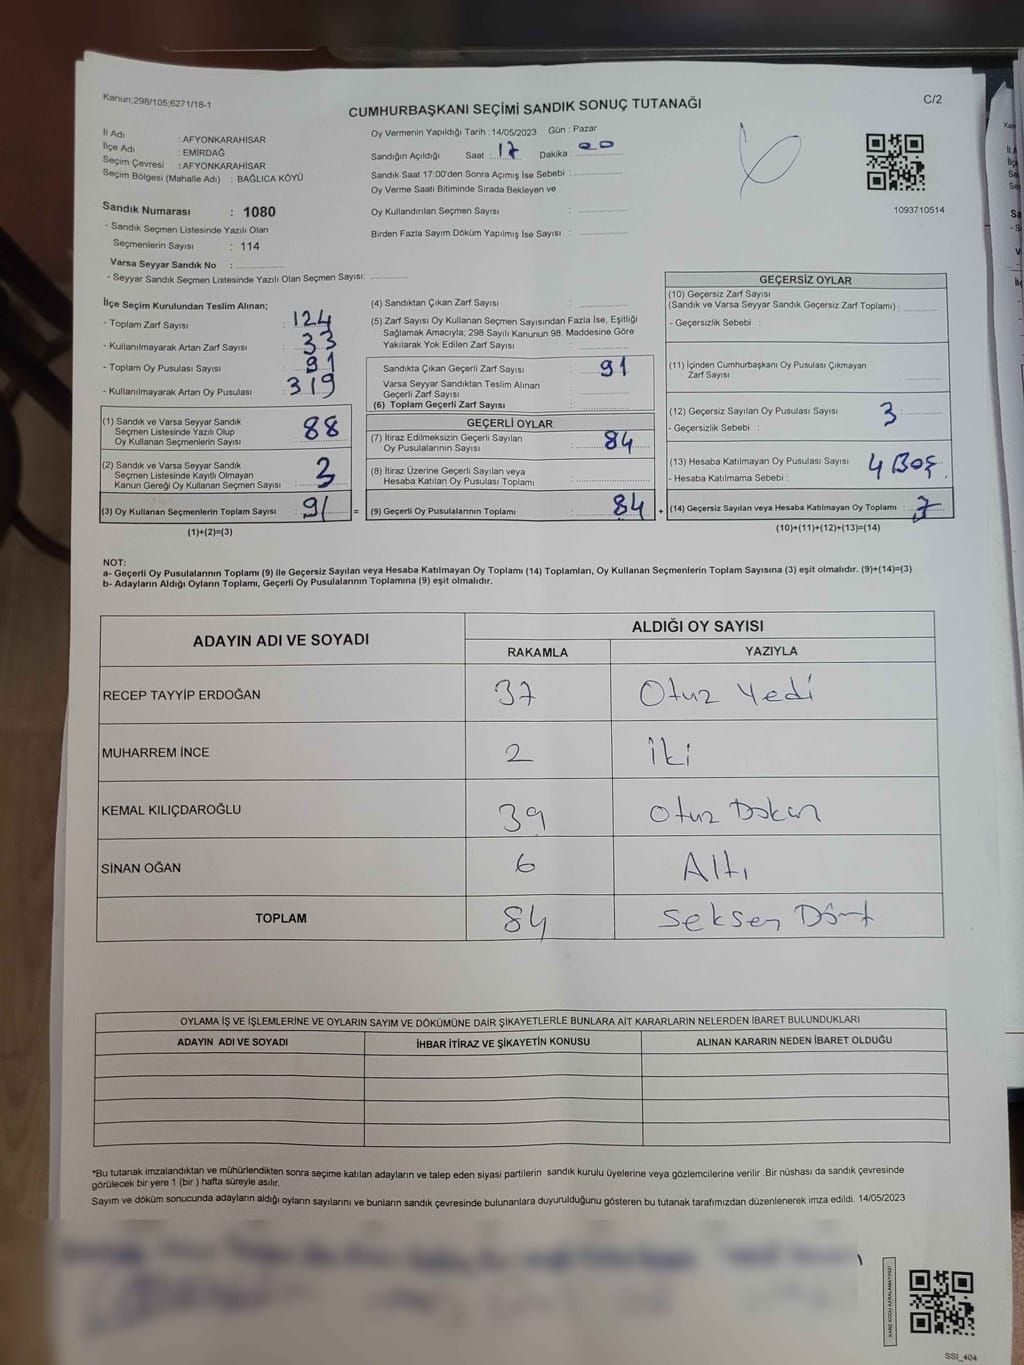 Kanun;298/105;6271/18-1
CUMHURBAŞKANI SEÇİMİ SANDIK SONUÇ TUTANAĞI
C/2
İl Adı : AFYONKARAHİSAR
İlçe Adı : EMİRDAĞ
Seçim Çevresi : AFYONKARAHİSAR
Seçim Bölgesi (Mahalle Adı) : BAĞLICA KÖYÜ
Sandık Numarası : 1080
- Sandık Seçmen Listesinde Yazılı Olan
Seçmenlerin Sayısı : 114
Varsa Seyyar Sandık No :
- Seyyar Sandık Seçmen Listesinde Yazılı Olan Seçmen Sayısı:
Oy Vermenin Yapıldığı Tarih : 14/05/2023 Gün : Pazar
Sandığın Açıldığı Saat : 17 Dakika : 00
Sandık Saat 17:00'den Sonra Açımış İse Sebebi :
Oy Verme Saati Bitiminde Sırada Bekleyen ve
Oy Kullandırılan Seçmen Sayısı :
Birden Fazla Sayım Döküm Yapılmış İse Sayısı :
1093710514
İlçe Seçim Kurulundan Teslim Alınan;
- Toplam Zarf Sayısı : 124
- Kullanılmayarak Artan Zarf Sayısı : 33
- Toplam Oy Pusulası Sayısı : 91
- Kullanılmayarak Artan Oy Pusulası : 319
(1) Sandık ve Varsa Seyyar Sandık
Seçmen Listesinde Yazılı Olup
Oy Kullanan Seçmenlerin Sayısı : 88
(2) Sandık ve Varsa Seyyar Sandık
Seçmen Listesinde Kayıtlı Olmayan
Kanun Gereği Oy Kullanan Seçmen Sayısı : 3
(3) Oy Kullanan Seçmenlerin Toplam Sayısı : 91 =
(1)+(2)=(3)
(4) Sandıktan Çıkan Zarf Sayısı :
(5) Zarf Sayısı Oy Kullanan Seçmen Sayısından Fazla İse, Eşitliği
Sağlamak Amacıyla; 298 Sayılı Kanunun 98. Maddesine Göre
Yakılarak Yok Edilen Zarf Sayısı :
Sandıkta Çıkan Geçerli Zarf Sayısı : 91
Varsa Seyyar Sandıktan Teslim Alınan
Geçerli Zarf Sayısı :
(6) Toplam Geçerli Zarf Sayısı :
GEÇERLİ OYLAR
(7) İtiraz Edilmeksizin Geçerli Sayılan
Oy Pusulalarının Sayısı : 84
(8) İtiraz Üzerine Geçerli Sayılan veya
Hesaba Katılan Oy Pusulası Toplamı :
(9) Geçerli Oy Pusulalarının Toplamı : 84 +
GEÇERSİZ OYLAR
(10) Geçersiz Zarf Sayısı
(Sandık ve Varsa Seyyar Sandık Geçersiz Zarf Toplamı) :
- Geçersizlik Sebebi :
(11) İçinden Cumhurbaşkanı Oy Pusulası Çıkmayan
Zarf Sayısı :
(12) Geçersiz Sayılan Oy Pusulası Sayısı : 3
- Geçersizlik Sebebi :
(13) Hesaba Katılmayan Oy Pusulası Sayısı : 4 Boş
- Hesaba Katılmama Sebebi :
(14) Geçersiz Sayılan veya Hesaba Katılmayan Oy Toplamı : 7
(10)+(11)+(12)+(13)=(14)
NOT:
a- Geçerli Oy Pusulalarının Toplamı (9) ile Geçersiz Sayılan veya Hesaba Katılmayan Oy Toplamı (14) Toplamları, Oy Kullanan Seçmenlerin Toplam Sayısına (3) eşit olmalıdır. (9)+(14)=(3)
b- Adayların Aldığı Oyların Toplamı, Geçerli Oy Pusulalarının Toplamına (9) eşit olmalıdır.
ADAYIN ADI VE SOYADI ALDIĞI OY SAYISI
RAKAMLA YAZIYLA
RECEP TAYYİP ERDOĞAN 37 Otuz Yedi
MUHARREM İNCE 2 İki
KEMAL KILIÇDAROĞLU 39 Otuz Dokuz
SİNAN OĞAN 6 Altı
TOPLAM 84 Seksen Dört
OYLAMA İŞ VE İŞLEMLERİNE VE OYLARIN SAYIM VE DÖKÜMÜNE DAİR ŞİKAYETLERLE BUNLARA AİT KARARLARIN NELERDEN İBARET BULUNDUKLARI
ADAYIN ADI VE SOYADI İHBAR İTİRAZ VE ŞİKAYETİN KONUSU ALINAN KARARIN NEDEN İBARET OLDUĞU
*Bu tutanak imzalandıktan ve mühürlendikten sonra seçime katılan adayların ve talep eden siyasi partilerin sandık kurulu üyelerine veya gözlemcilerine verilir .Bir nüshası da sandık çevresinde
görülecek bir yere 1 (bir ) hafta süreyle asılır.
Sayım ve döküm sonucunda adayların aldığı oyların sayılarını ve bunların sandık çevresinde bulunanlara duyurulduğunu gösteren bu tutanak tarafımızdan düzenlenerek imza edildi. 14/05/2023
KARE KODU KARALAMAYINIZ!
SSI_404